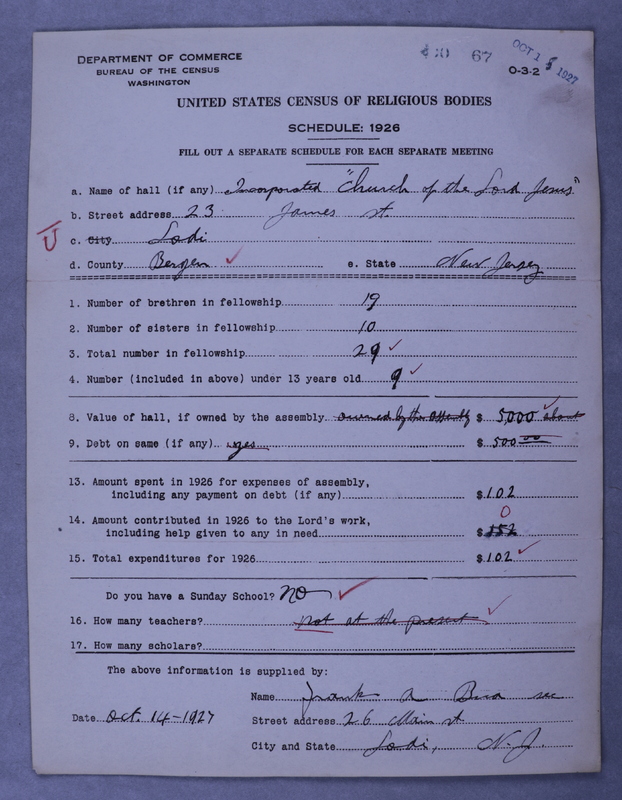 DEPARTMENT OF COMMERCE
BUREAU OF THE CENSUS
WASHINGTON
67
OCT 15 1927
O-3-2
UNITED STATES CENSUS OF RELIGIOUS BODIES
SCHEDULE: 1926
FILL OUT A SEPARATE SCHEDULE FOR EACH SEPARATE MEETING
a. Name of hall (if any) Incorporated "Church of the Lord Jesus"
b. Street address 23 James st.
c. City Lodi
d. County Bergen e. State New Jersey
1. Number of brethren in fellowship 19
2. Number of sisters in fellowship 10
3. Total number in fellowship 29
4. Number (included in above) under 13 years old 9
8. Value of hall, if owned by the assembly owned by the assembly $ 5,000 about
9. Debt on same (if any) yes $ 500 00
13. Amount spent in 1926 for expenses of assembly,
including any payment on debt (if any) $ 102
14. Amount contributed in 1926 to the Lord's work, 0
including help given to any in need $ 152
15. Total expenditures for 1926 $ 102
Do you have a Sunday School? no
16. How many teachers? not at the present
17. How many scholars?
The above information is supplied by:
Name Frank A sec
Date Oct. 14-1927 Street address 26 Main st
City and State Lodi, N. J.